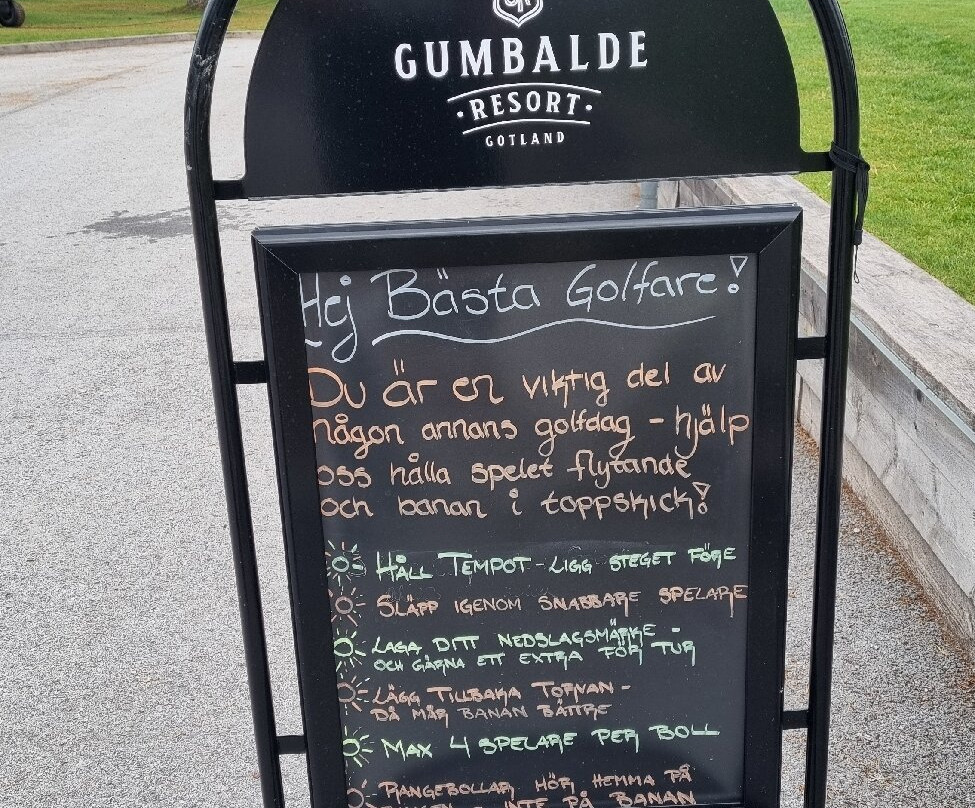 GUMBALDE
·RESORT·
GOTLAND
Hej Bästa Golfare!
Du är en viktig del av
någon annans golfdag - hjälp
oss hålla spelet flytande
och banan i toppskick!
HÅLL TEMPOT - LIGG STEGET FÖRE
SLÄPP IGENOM SNABBARE SPELARE
LAGA DITT NEDSLAGSMÄRKE -
OCH GÄRNA ETT EXTRA FÖR TUR
LÄGG TILLBAKA TORVAN -
DÅ MÅR BANAN BÄTTRE
MAX 4 SPELARE PER BOLL
RANGEBOLLAR HÖR HEMMA PÅ
RANGEN - INTE PÅ BANAN